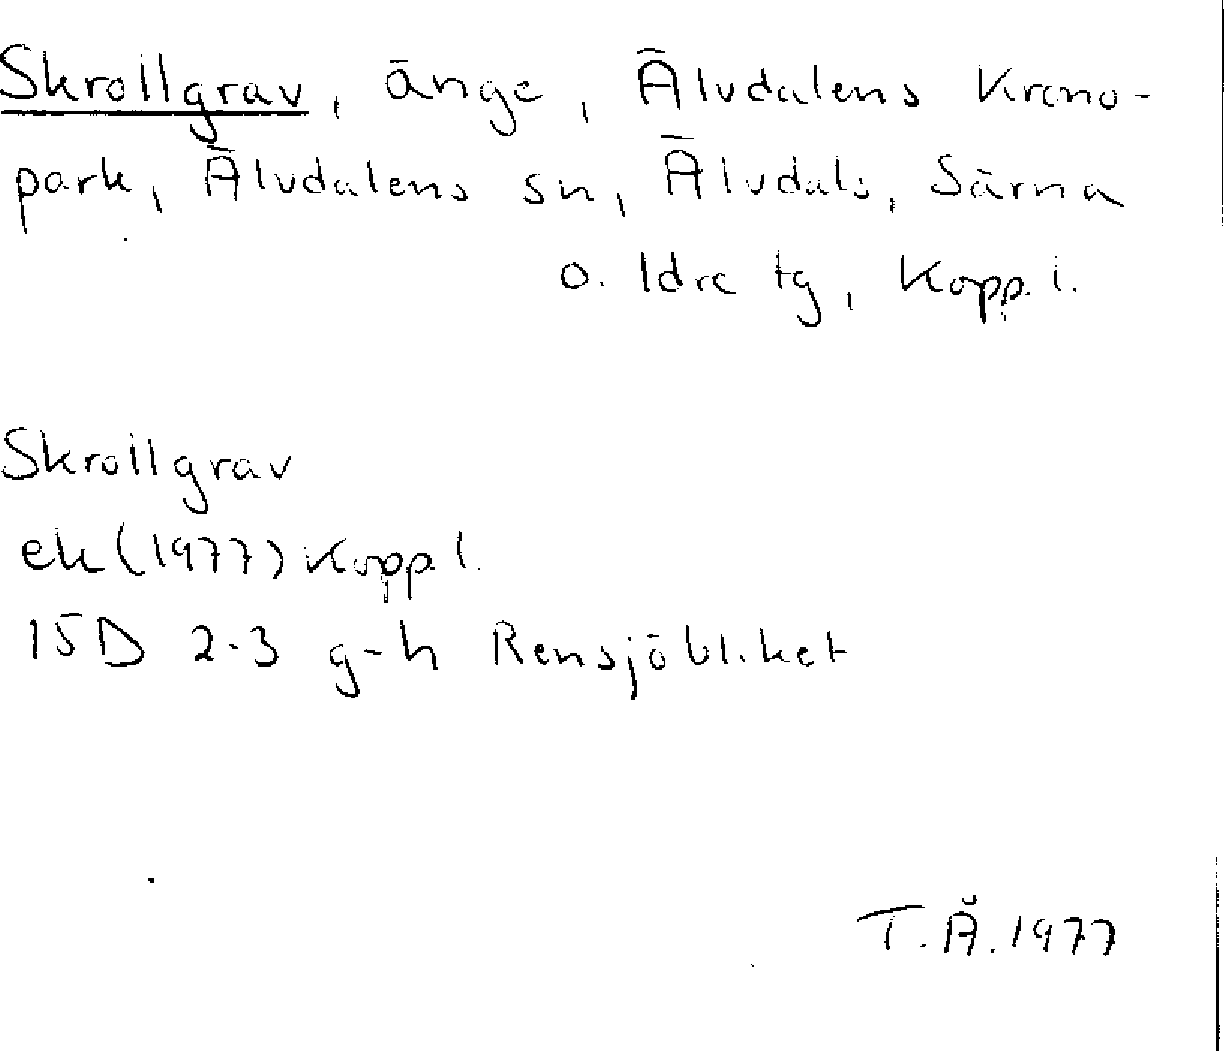 Skrollgrav, änge, Älvdalens Krono-
park, Älvdalens sn, Älvdals, Särna
o. Idre tg, Kopp. l.
Skrollgrav
ek (1977) Kopp l.
15D 2-3 g-h Rensjöbliket
T.Å. 1977